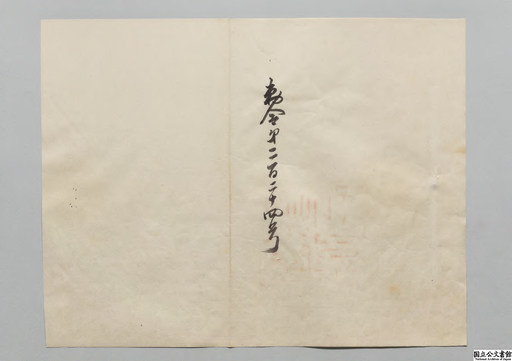 勅令第二百二十四号
国立公文書館
National Archives of Japan